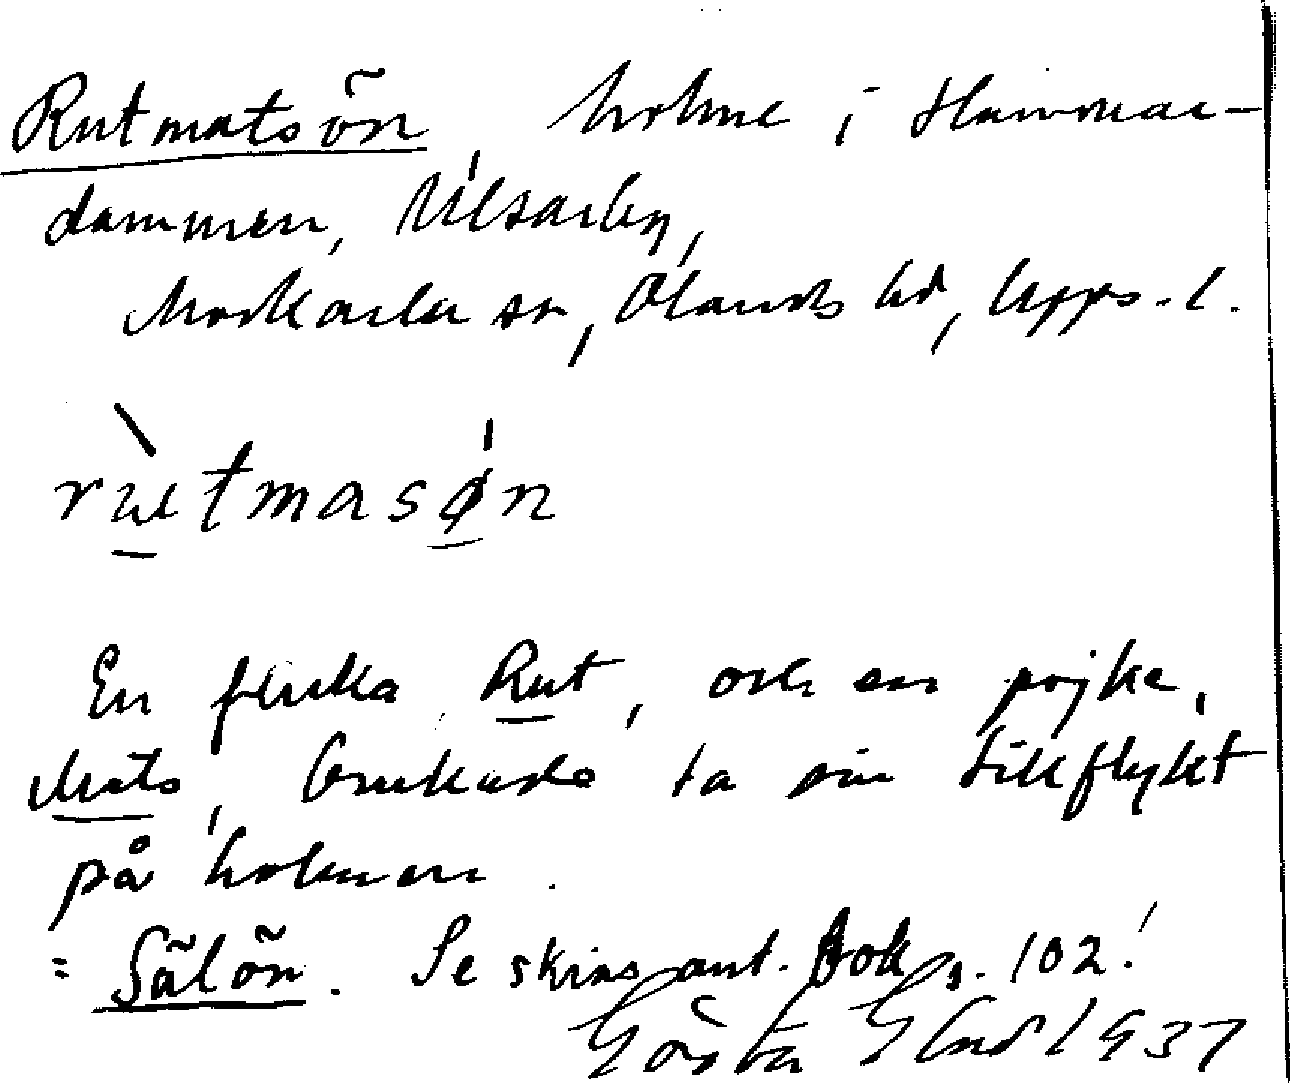 Rutmatsön, holme i Hammar-
dammen, Ullsarby,
Morkarla sn, Ölands hd, Upps. l.
rùtmasǿn
En flicka, Rut, och en pojke,
Mats, brukade ta sin tillflykt
på holmen.
= Sälön. Se skiss ant. bok s. 102!
Gösta 1937